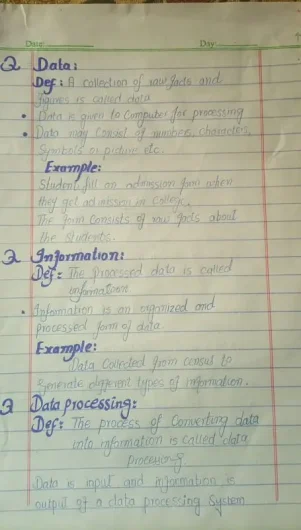 Date:
Day:
Q Data:
Def: A collection of raw facts and
figures is called data
• Data is given to Computer for processing
• Data may Consist of numbers, characters,
Symbols or picture etc.
Example:
Student fill an admission form when
they get admission in college.
The form consists of raw facts about
the students.
Q Information:
Def: The Processed data is called
information
• Information is an organized and
processed form of data.
Example:
Data Collected from census to
Generate different types of information.
Q Data processing:
Def: The process of Converting data
into information is called data
processing.
Data is input and information is
output of a data processing System